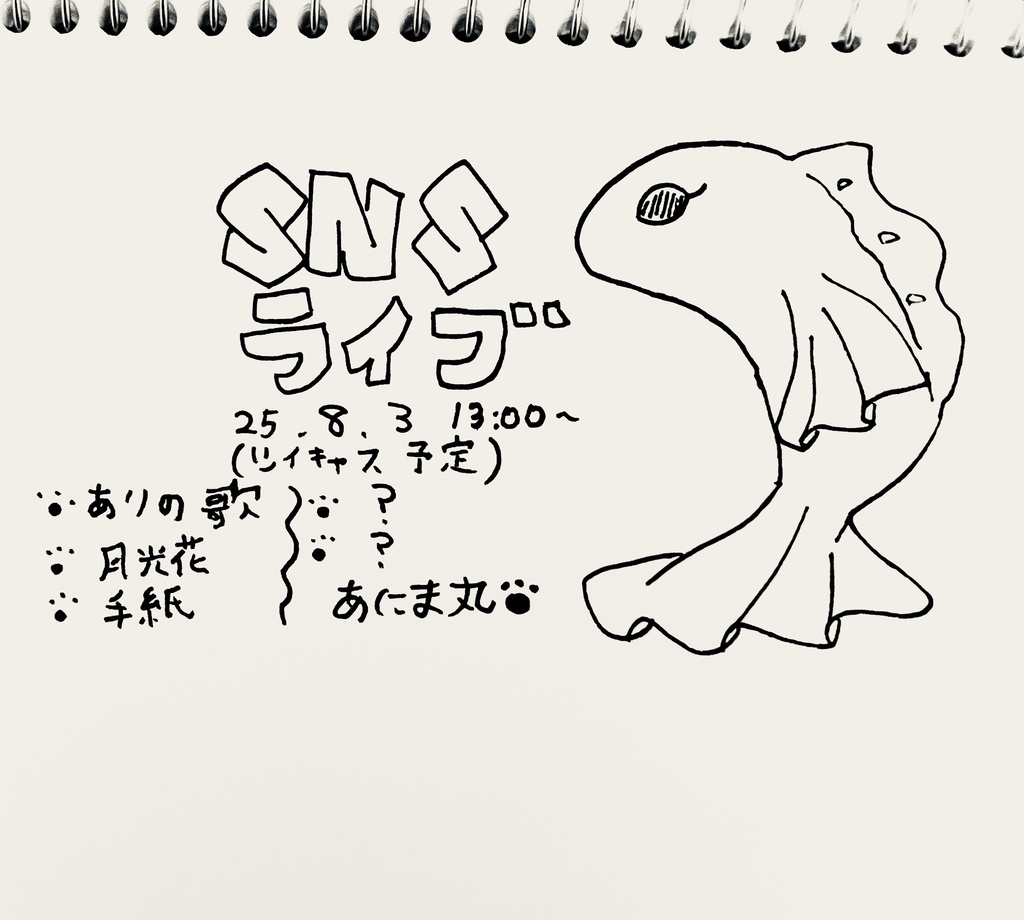 SNS
ライブ
25.8.3 13:00~
(ツイキャス 予定)
ありの歌
月光花
手紙
?
?
あにま丸